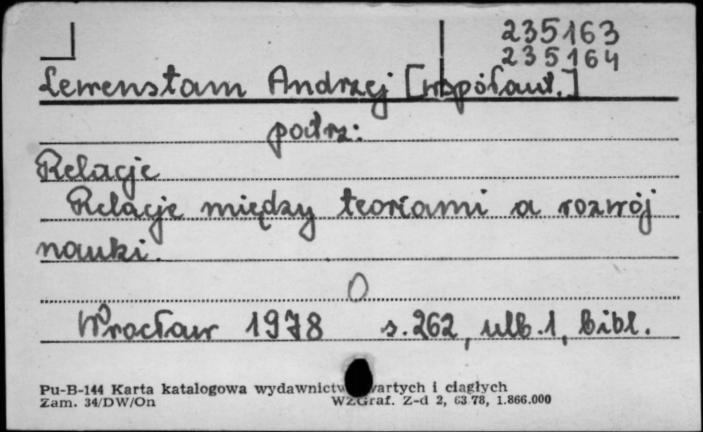 235163
235164
Lewenstam Andrzej [współaut.]
patrz:
Relacje
Relacje między teoriami a rozwój
nauki.
Wrocław 1978 s. 262, ulb. 1, bibl.
Pu-B-144 Karta katalogowa wydawnictw zwartych i ciągłych
Zam. 34/DW/On WZGraf. Z-d 2, 63 78, 1.866.000